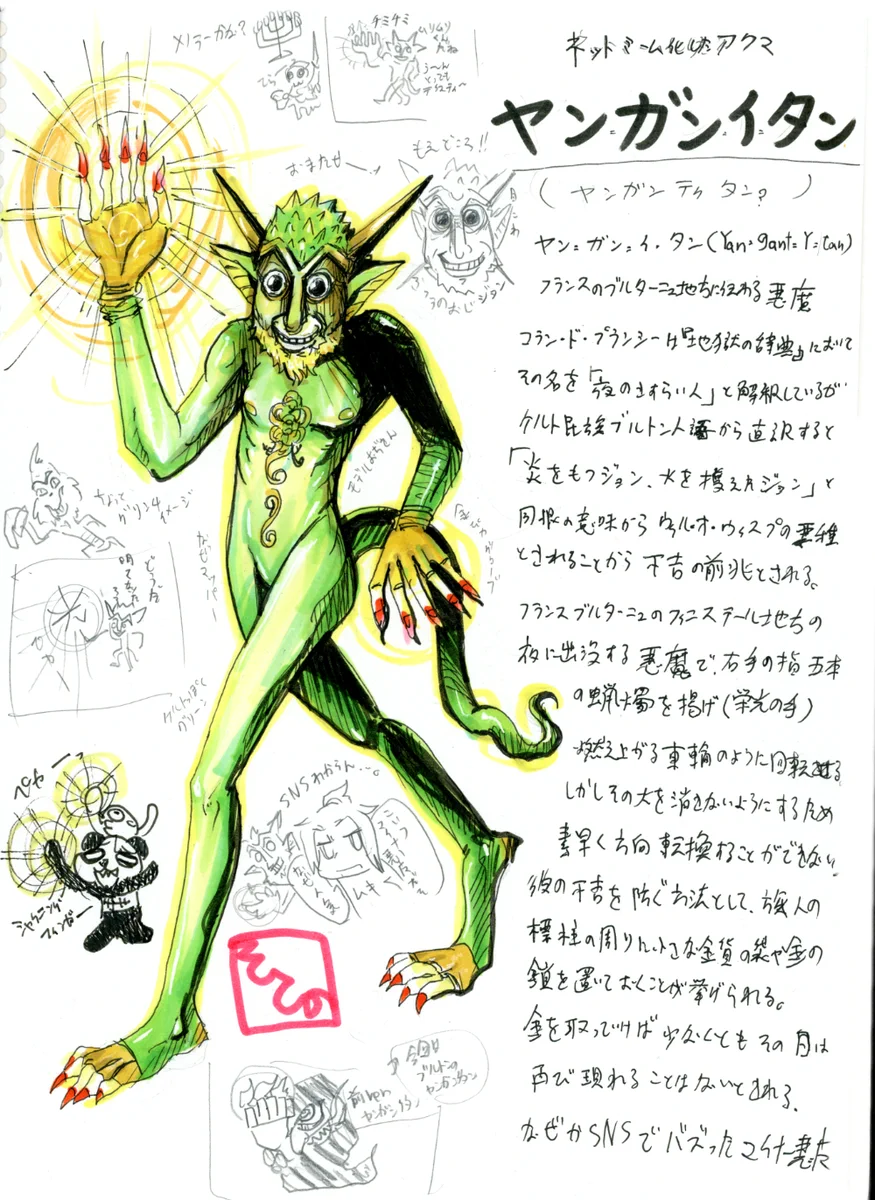 ネットミーム化したアクマ
ヤン=ガン=イ=タン
(ヤンガンティタン?)
ヤン=ガン=イ・タン(Yan=gant=Y=tan)
フランスのブルターニュ地方に伝わる悪魔
コラン・ド・プランシーは『地獄の辞典』において
その名を「夜のさすらい人」と解釈しているが
ケルト民族ブルトン人語から直訳すると
「炎をもつジョン、火を携えたジョン」と
同根の意味からウィル・オ・ウィスプの悪種
とされることから不吉の前兆とされる。
フランスブルターニュのフィニステール地方の
夜に出没する悪魔で、右手の指五本
の蝋燭を掲げ(栄光の手)
燃え上がる車輪のように回転させる
しかしその火を消さないようにするため
素早く方向転換することができない。
彼の不吉を防ぐ方法として、旅人の
標柱の周りに小さな金貨の袋や金の
鎖を置いておくことが挙げられる。
金を取っていけば少なくともその月は
再び現れることはないとされる。
なぜかSNSでバズったマイナー悪魔
メノラーかが?
てら
チミチミ
う〜ん
とっても
おまたせ
もえどころ!!
モデルおぢさん
ちょっと
グリンチ
イメージ
なぜマッパー
どうだ
明るく
ケルトっぽく
グリーン
ぺかーっ
シャイニング
フィンガー
SNSわからん…。
こいつ
なぜ
ムキ
今回は
ブルトンの
ヤンガンタン
前ver
ヤンガンイタン